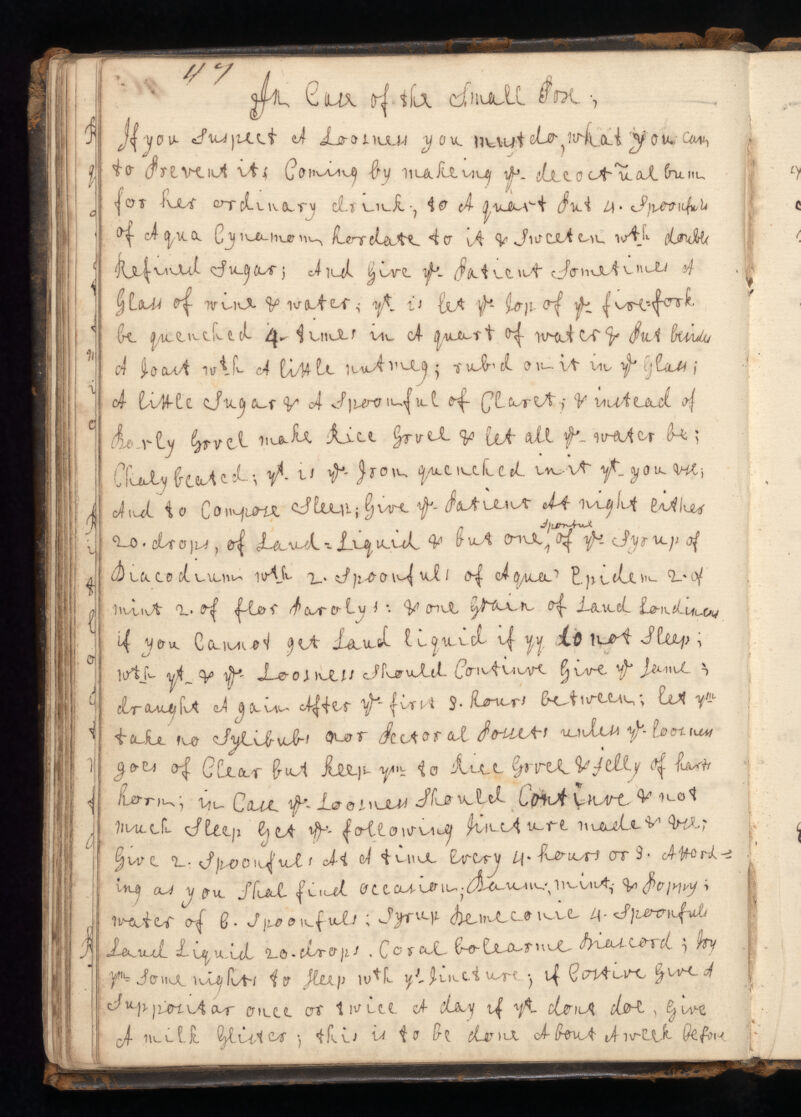 47
In Case of the Small Pox;
If you Suspect A Loosness you must do, what you can
to Prevent its Coming by makeing ye decoct: album
for her ordinary drink; to A quart Put 4. Spoonfuls
of Aqua Cynamom hordate to it & Sweeten wth double
Refined Sugar; And Give ye Patient Sometimes A
Glass of wine & water; yt is let ye top of ye fire=fork
be quenched 4 times in A quart of water & Put besides
A Toast wth A little nutmeg; rub'd on it in ye Glass;
A little Sugar & A Spoonful of Claret; & instead of
Barly Grvel make Rice Grvel & let all ye water be;
Chalybeated; yt is ye Iron quenched in it yt you vse;
And to Compose Sleep; Give ye Patient At night Either
20. drops, of Laud=Liquid & but one, spoonful of ye Syrup of
Diacodium wth 2. Spoonfuls of Aqua Epidem 2. of
mint 2. of flor Parolys: & one Grain of Laud Londinens
if you Cannot get Laud liquid if yy do not Sleep;
wth yt & ye Loosness Should Continve Give ye same;
draught A gain After ye first 8. hours between; let ym
take no Sylibubs nor Pectoral Possets unless ye loosness
goes of Clear but keep ym to Rice Grvel & jelly of harts
horn; in Case ye Loosness Should Continve & not
much Sleep Get ye following Tincture made & vse;
Give 2. Spoonfuls At A time Every 4. hours or 3. Accord=
ing as you Shal find occasion; Baum; mint; & Poppy;
water of 6. Spoonfuls; Syrup Demeconie 4. Spoonfuls
Laud Liquid 20. drops. Coral bolearme Diascord; try
ym Some nights to sleep wth ys Tincture; if Costive Give A
Suppositar once or twice A day if yt dont doe, Give
A milk Glister; this is to be done About A week before